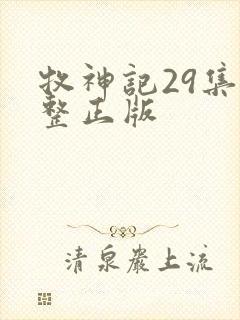 牧神記29集
整正版
清泉巖上流